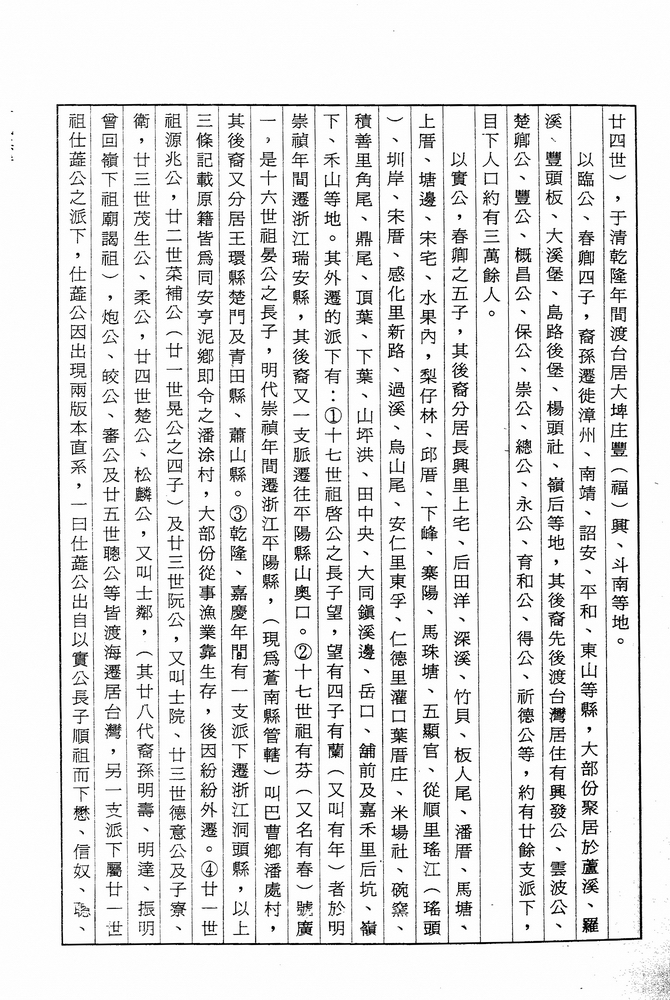 廿四世），于清乾隆年間渡台居大埤庄豐（福）興、斗南等地。
以臨公、春卿四子，裔孫遷徙漳州、南靖、詔安、平和、東山等縣，大部份聚居於蘆溪、羅
溪、豐頭板、大溪堡、島路後堡、楊頭社、嶺后等地，其後裔先後渡台灣居住有興發公、雲波公、
楚卿公、豐公、概昌公、保公、崇公、總公、永公、育和公、得公、祈德公等，約有廿餘支派下，
目下人口約有三萬餘人。
以實公，春卿之五子，其後裔分居長興里上宅、后田洋、深溪、竹貝、板人尾、潘厝、馬塘、
上厝、塘邊、宋宅、水果內，梨仔林、邱厝、下峰、寨陽、馬珠塘、五顯官、從順里瑤江（瑤頭
）、圳岸、宋厝、感化里新路、過溪、烏山尾、安仁里東孚、仁德里灌口葉厝庄、米場社、碗窯、
積善里角尾、鼎尾、頂葉、下葉、山坪洪、田中央、大同鎮溪邊、岳口、舖前及嘉禾里后坑、嶺
下、禾山等地。其外遷的派下有：①十七世祖啓公之長子望，望有四子有蘭（又叫有年）者於明
崇禎年間遷浙江瑞安縣，其後裔又一支脈遷往平陽縣山奧口。②十七世祖有芬（又名有春）號廣
一，是十六世祖晏公之長子，明代崇禎年間遷浙江平陽縣，（現爲蒼南縣管轄）叫巴曹鄉潘處村，
其後裔又分居王環縣楚門及青田縣、蕭山縣。③乾隆、嘉慶年間有一支派下遷浙江洞頭縣，以上
三條記載原籍皆爲同安亨泥鄉即今之潘涂村，大部份從事漁業靠生存，後因紛紛外遷。④廿一世
祖源兆公，廿二世菜補公（廿一世晃公之四子）及廿三世阮公，又叫士院、廿三世德意公及子寮、
衛，廿三世茂生公、柔公，廿四世楚公、松麟公，又叫士鄰，（其廿八代裔孫明壽、明達、振明
曾回嶺下祖廟謁祖），炮公、皎公、審公及廿五世聰公等皆渡海遷居台灣，另一支派下屬廿一世
祖仕蕋公之派下，仕蕋公因出現兩版本直系，一曰仕蕋公出自以實公長子順祖而下懋、信奴、聰、